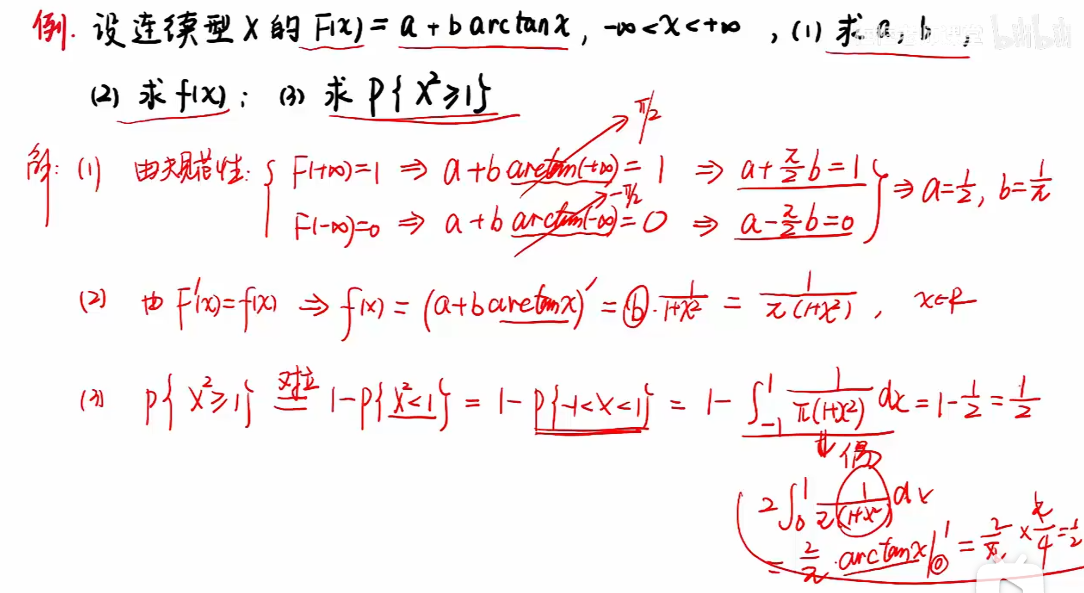 例. 设连续型 X 的 F(x) = a + b arctanx, -∞<x<+∞ , (1) 求 a, b ,
(2) 求 f(x); (3) 求 P{ X²≥1}
解: (1) 由规范性: { F(+∞)=1 ⇒ a+b arctan(+∞) = 1 ⇒ a+π/2 b=1
π/2
F(-∞)=0 ⇒ a+b arctan(-∞) = 0 ⇒ a-π/2 b=0 } ⇒ a=1/2, b=1/π
-π/2
(2) 由 F'(x)=f(x) ⇒ f(x) = (a+b arctanx)' = b · 1/(1+x²) = 1/(π(1+x²)) , x∈R
(3) P{ X²≥1} 对立 = 1-P{X²<1} = 1- P{-1<X<1} = 1- ∫₋₁¹ 1/(π(1+x²)) dx = 1-1/2 = 1/2
⇓ 偶
2∫₀¹ 1/(π(1+x²)) dx
= 2/π · arctanx |₀¹ = 2/π × π/4 = 1/2